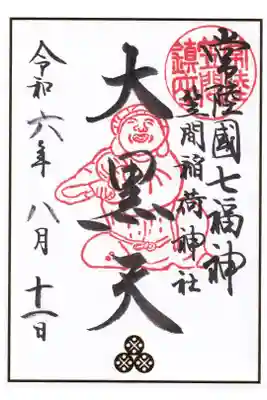 常陸國七福神
笠間稲荷神社
大黒天
令和六年八月十一日